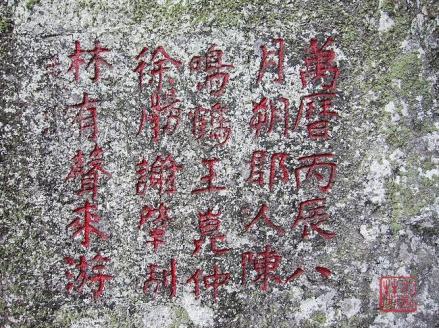 萬曆丙辰八
月朔郡人陳
鳴鶴王崑仲
徐𤊹諭肇制
林有聲來游